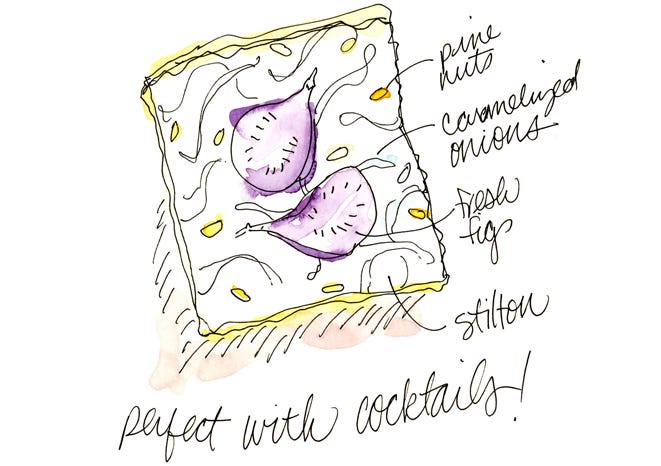 pine
nuts
caramelized
onions
fresh
figs
stilton
perfect with cocktails!